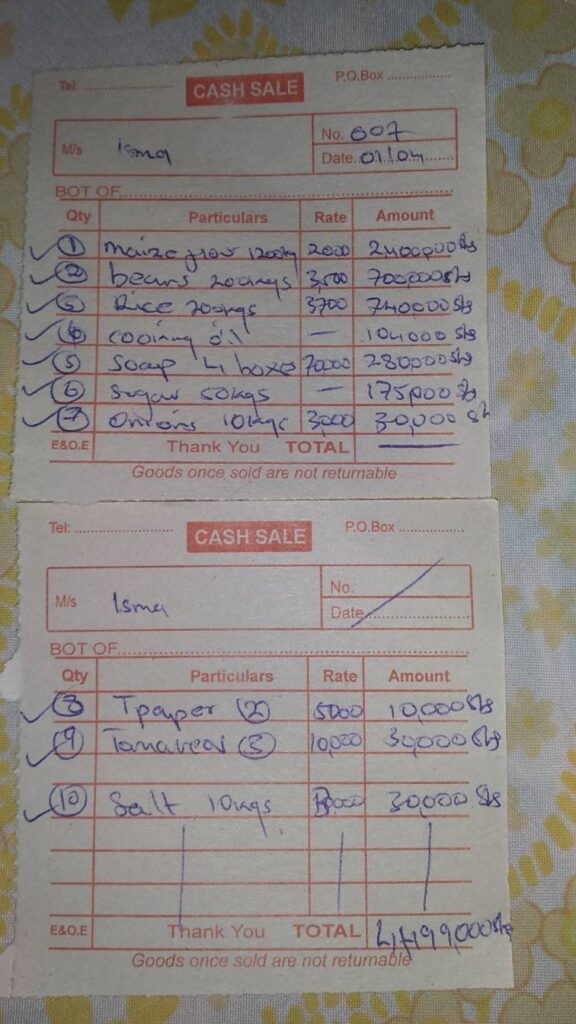 Tel: .................... CASH SALE P.O.Box ................
M/s isma No. 007
Date. 01/04
BOT OF
Qty Particulars Rate Amount
1 maize flour 1200kg 2000 2400,000 shs
2 beans 200kgs 3,500 700,000 shs
3 Rice 200kgs 3700 740,000 shs
4 cooking oil — 104,000 shs
5 Soap 4 boxes 70,000 280,000 shs
6 Sugar 50kgs — 175,000 shs
7 Onions 10kgs 3,000 30,000 sh
E&O.E Thank You TOTAL
Goods once sold are not returnable
Tel: .................... CASH SALE P.O.Box ................
M/s Isma No.
Date
BOT OF
Qty Particulars Rate Amount
8 Tpaper (2) 5000 10,000 shs
9 (3) 10,000 30,000 shs
10 Salt 10kgs 3000 30,000 shs
E&O.E Thank You TOTAL 4,499,000 shs
Goods once sold are not returnable